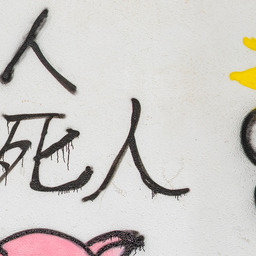 人
死人